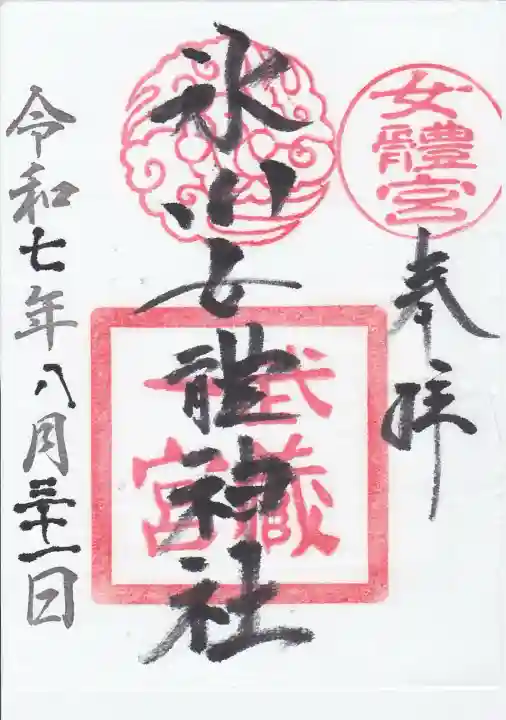 女體宮
奉拝
氷川女體神社
武蔵
一宮
令和七年八月三十一日